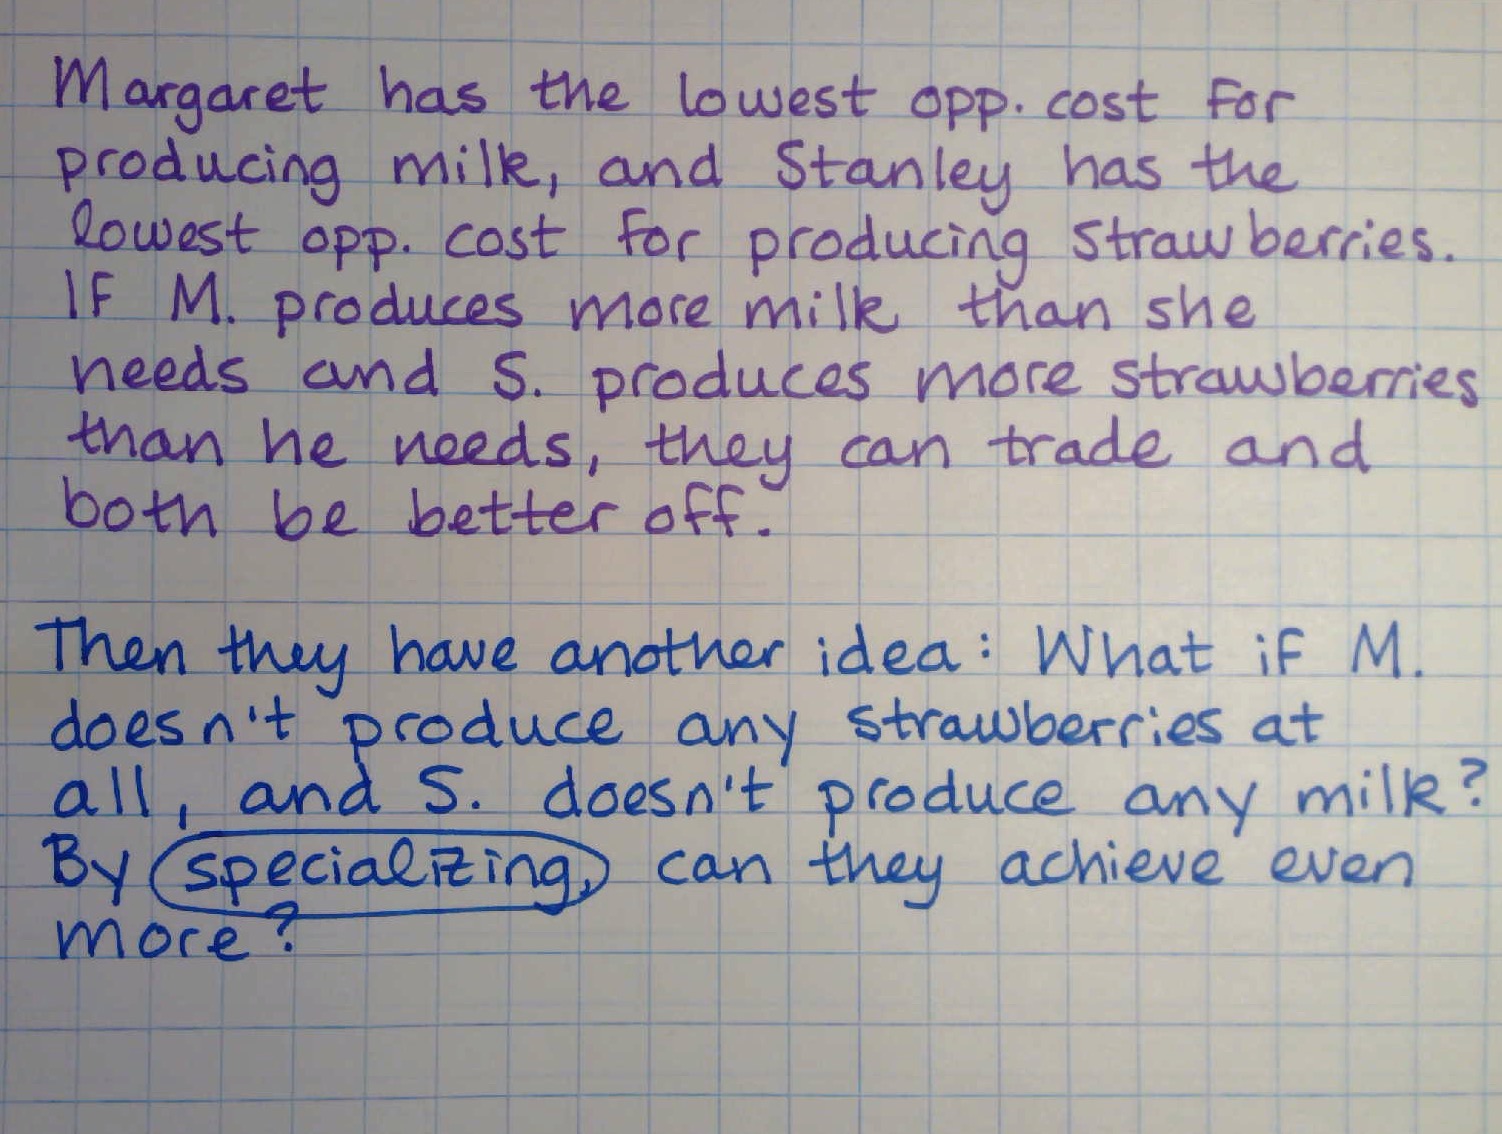 Margaret has the lowest opp. cost for
producing milk, and Stanley has the
lowest opp. cost for producing strawberries.
If M. produces more milk than she
needs and S. produces more strawberries
than he needs, they can trade and
both be better off.
Then they have another idea: What if M.
doesn't produce any strawberries at
all, and S. doesn't produce any milk?
By specializing, can they achieve even
more?